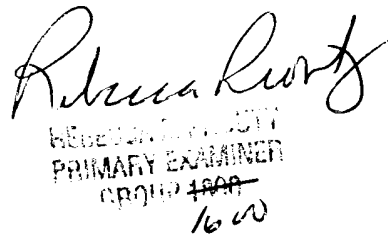 Rebecca Prouty
REBECCA PROUTY
PRIMARY EXAMINER
GROUP 1800
1600